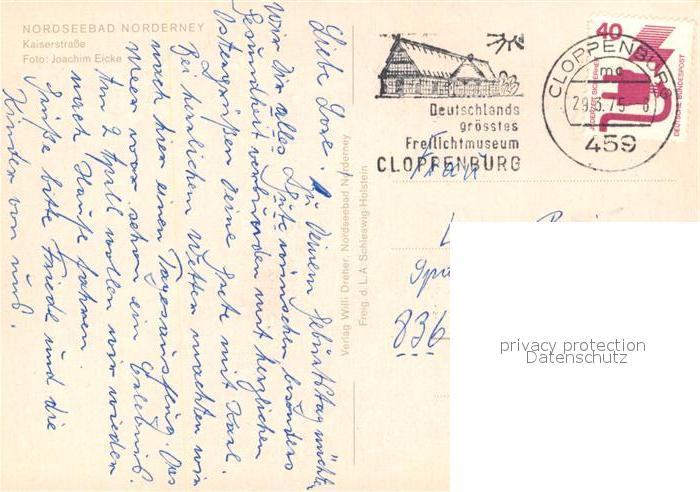 NORDSEEBAD NORDERNEY
Kaiserstraße
Foto: Joachim Eicke
Liebe Lore! Zu Deinem Geburtstag möchte
wir Dir alles Gute wünschen besonders
Gesundheit verbunden mit herzlichen
Ostergrüßen Deine Grete mit Karl.
Bei herrlichem Wetter machten wir
nach hier einen Tagesausflug. Das
Meer war schon ein Erlebnis.
Am 2 April wollen wir wieder
nach Hause fahren.
Grüße bitte Friede und die
Kinder von uns.
Verlag Willi Dreher, Nordseebad Norderney
Freig. d. L.A. Schleswig-Holstein
Deutschlands
grösstes
Freilichtmuseum
CLOPPENBURG
CLOPPENBURG
mc
29.3.75-8
459
40
JEDERZEIT SICHERHEIT
DEUTSCHE BUNDESPOST
Frau
836
privacy protection
Datenschutz